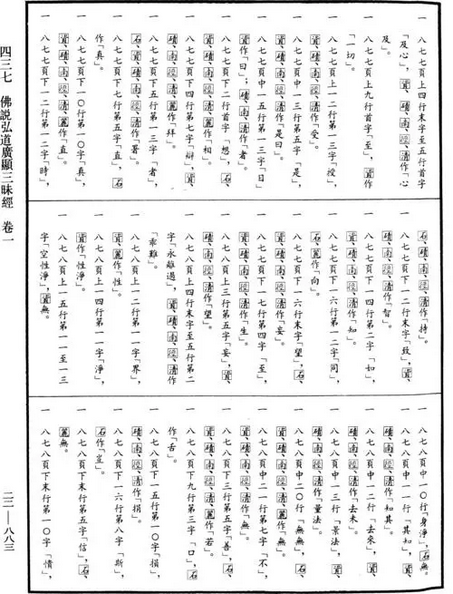 一 八七七頁上四行末字至五行首字
「及心」，資、磧、南、徑、清作「心
及」。
一 八七七頁上九行首字「至」，資作
「一切」。
一 八七七頁上一二行第一三字「授」，
資、磧、南、徑、清作「受」。
一 八七七頁中一三行第五字「是」，
資、磧、南、徑、清作「是曰」。
一 八七七頁中一五行第一三字「曰」，
資作「日」；磧、南、徑、清作「者」。
一 八七七頁下二行首字「想」，石、
資、磧、南、徑、清、麗作「相」。
一 八七七頁下四行第七字「辯」，資、
磧、南、徑、清、麗作「拜」。
一 八七七頁下五行第一三字「者」，
石、資、磧、南、徑、清作「著」。
一 八七七頁下七行第五字「直」，石
作「真」。
一 八七七頁下一〇行第一〇字「真」，
資、磧、南、徑、清、麗作「直」。
一 八七七頁下一二行第一二字「時」，
資、磧、南、徑、清作「持」。
一 八七七頁下一二行末字「致」，資、
磧、南、徑、清作「智」。
一 八七七頁下一四行第二字「如」，
資、磧、南、徑、清作「知」。
一 八七七頁下一六行第一二字「同」，
石、麗作「向」。
一 八七七頁下一六行末字「望」，石、
資、磧、南、徑、清作「妄」。
一 八七七頁下一七行第四字「至」，
資、磧、南、徑、清作「生」。
一 八七八頁上三行第五字「妄」，資、
磧、南、徑、清作「望」。
一 八七八頁上四行末字至五行第二
字「永離過」，資、磧、南、徑、清作
「乖離」。
一 八七八頁上一二行第一一字「界」，
資、麗作「性」。
一 八七八頁上一四行第一一字「淨」，
資作「性淨」。
一 八七八頁上一五行第一一至一三
字「空性淨」，資無。
一 八七八頁中一〇行「身淨」，石無。
一 八七八頁中一一行「其知」，資、
磧、南、徑、清作「知其」。
一 八七八頁中一二行「去來」，資、
磧、南、徑、清作「去未」。
一 八七八頁中一三行「景法」，資、
磧、南、徑、清作「量法」。
一 八七八頁中二〇行「無無」，石、
資、磧、南、徑、清、麗作「無」。
一 八七八頁中二一行第七字「不」，
資、磧、南、徑、清作「無」。
一 八七八頁下三行第五字「善」，石、
資、磧、南、徑、清、麗作「若」。
一 八七八頁下九行第三字「口」，石
作「舌」。
一 八七八頁下一五行第一〇字「損」，
一 八七八頁下一六行第八字「斯」，
一 八七八頁下末行第五字「信」，石、
麗無。
一 八七八頁下末行第一〇字「情」，
四三七 佛說弘道廣顯三昧經 卷一
二二—八八三